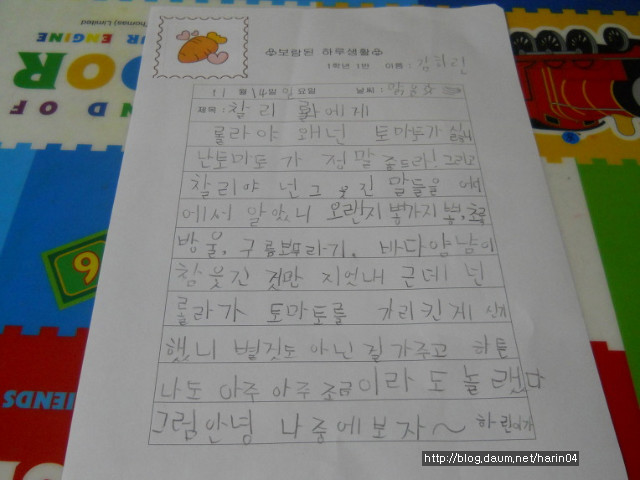 ENGINE
OOR
ND OF
Thomas) Limited
FRIENDS
9
✿보람된 하루생활✿
1학년 1반 이름: 김하린
11 월 요일 날씨:
제목: 찰리 롤라에게
롤라야 왜넌 토마토가 싫니
난토마토가 정말 좋드라! 그리고
찰리야 넌 그 웃긴 말들을 어디
에서 알았니 오랜지뽕가지뽕, 초록
방울, 구름보푸라기, 바다얌냠이
참 웃긴 것만 지었내 근데! 넌
롤라가 토마토를 가리킨게 신기
했니 별것도 아닌걸가주고 하튼
나도 아주 아주 조금이라도 놀랬다
그럼안녕 나중에보자~ 하린이가
http://blog.daum.net/harin04